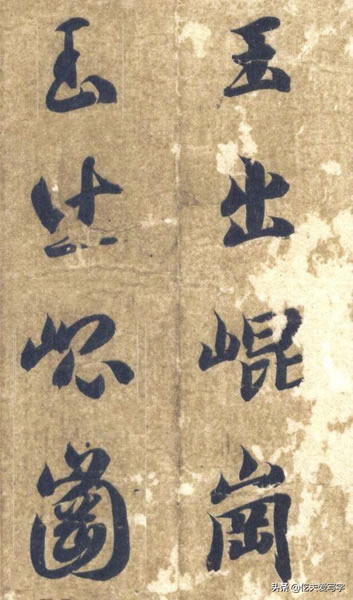 玉出崐崗
玉出崐崗
头条 @忆夫爱写字